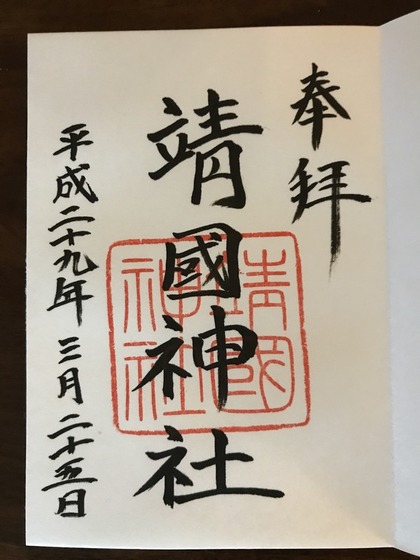 奉拝
靖國神社
靖國
神社
平成二十九年 三月 二十五日